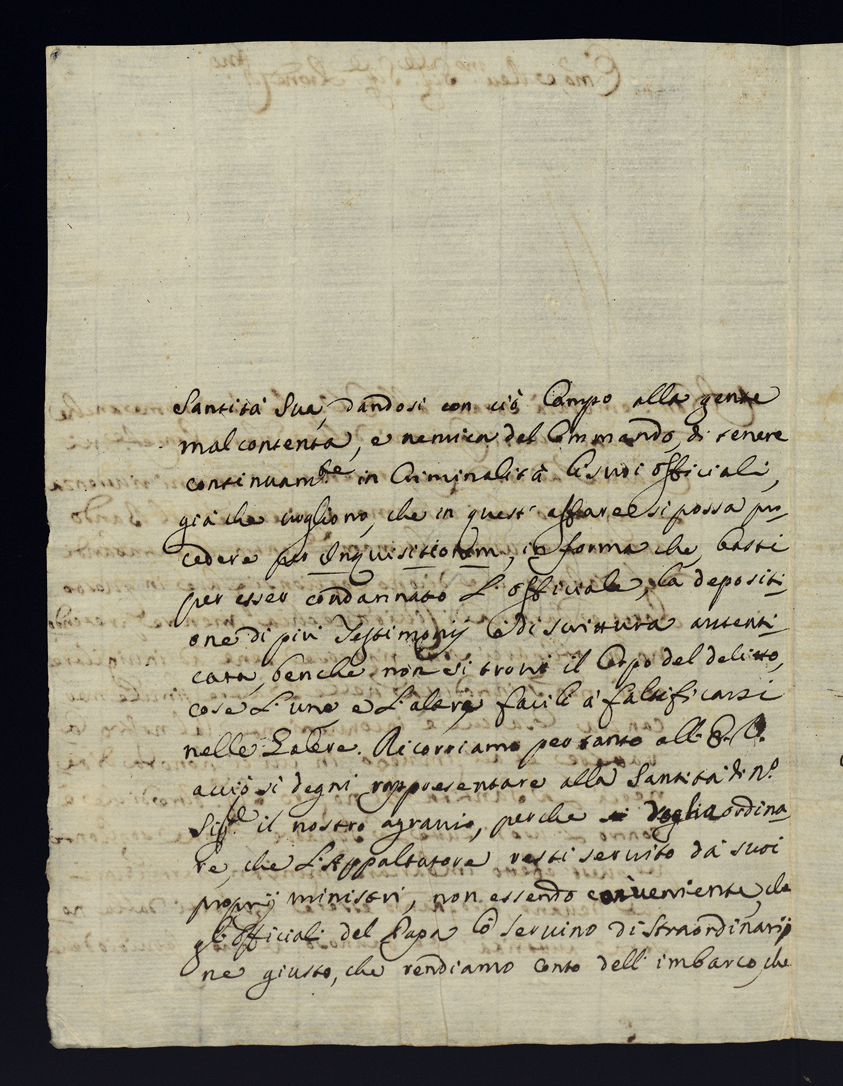 Santità Sua, dandosi con ciò Campo alla gente
mal contenta, e nemica del Commando, di tenere
continuam.te in Criminalità li suoi officiali,
già che vogliono, che in quest' affare si possa pro-
cedere per Inquisitionem, in forma che, basti
per esser condannato L'officiale, la depositi-
one di più Testimonij e di scrittura autenti-
cata, benche non si trovi il Corpo del delitto,
cose L'une e L'altre facili à falsificarsi
nelle Galere. Ricorriamo pertanto all' E. V.
acciò si degni rappresentare alla Santità di n.ro
Sig.re il nostro agravio, perche voglia ordina-
re, che L'Appaltatore resti servito da suoi
proprij ministri, non essendo conveniente, che
gl'officiali del Papa lo servino di straordinarij
ne giusto, che rendiamo conto dell' imbarco, che